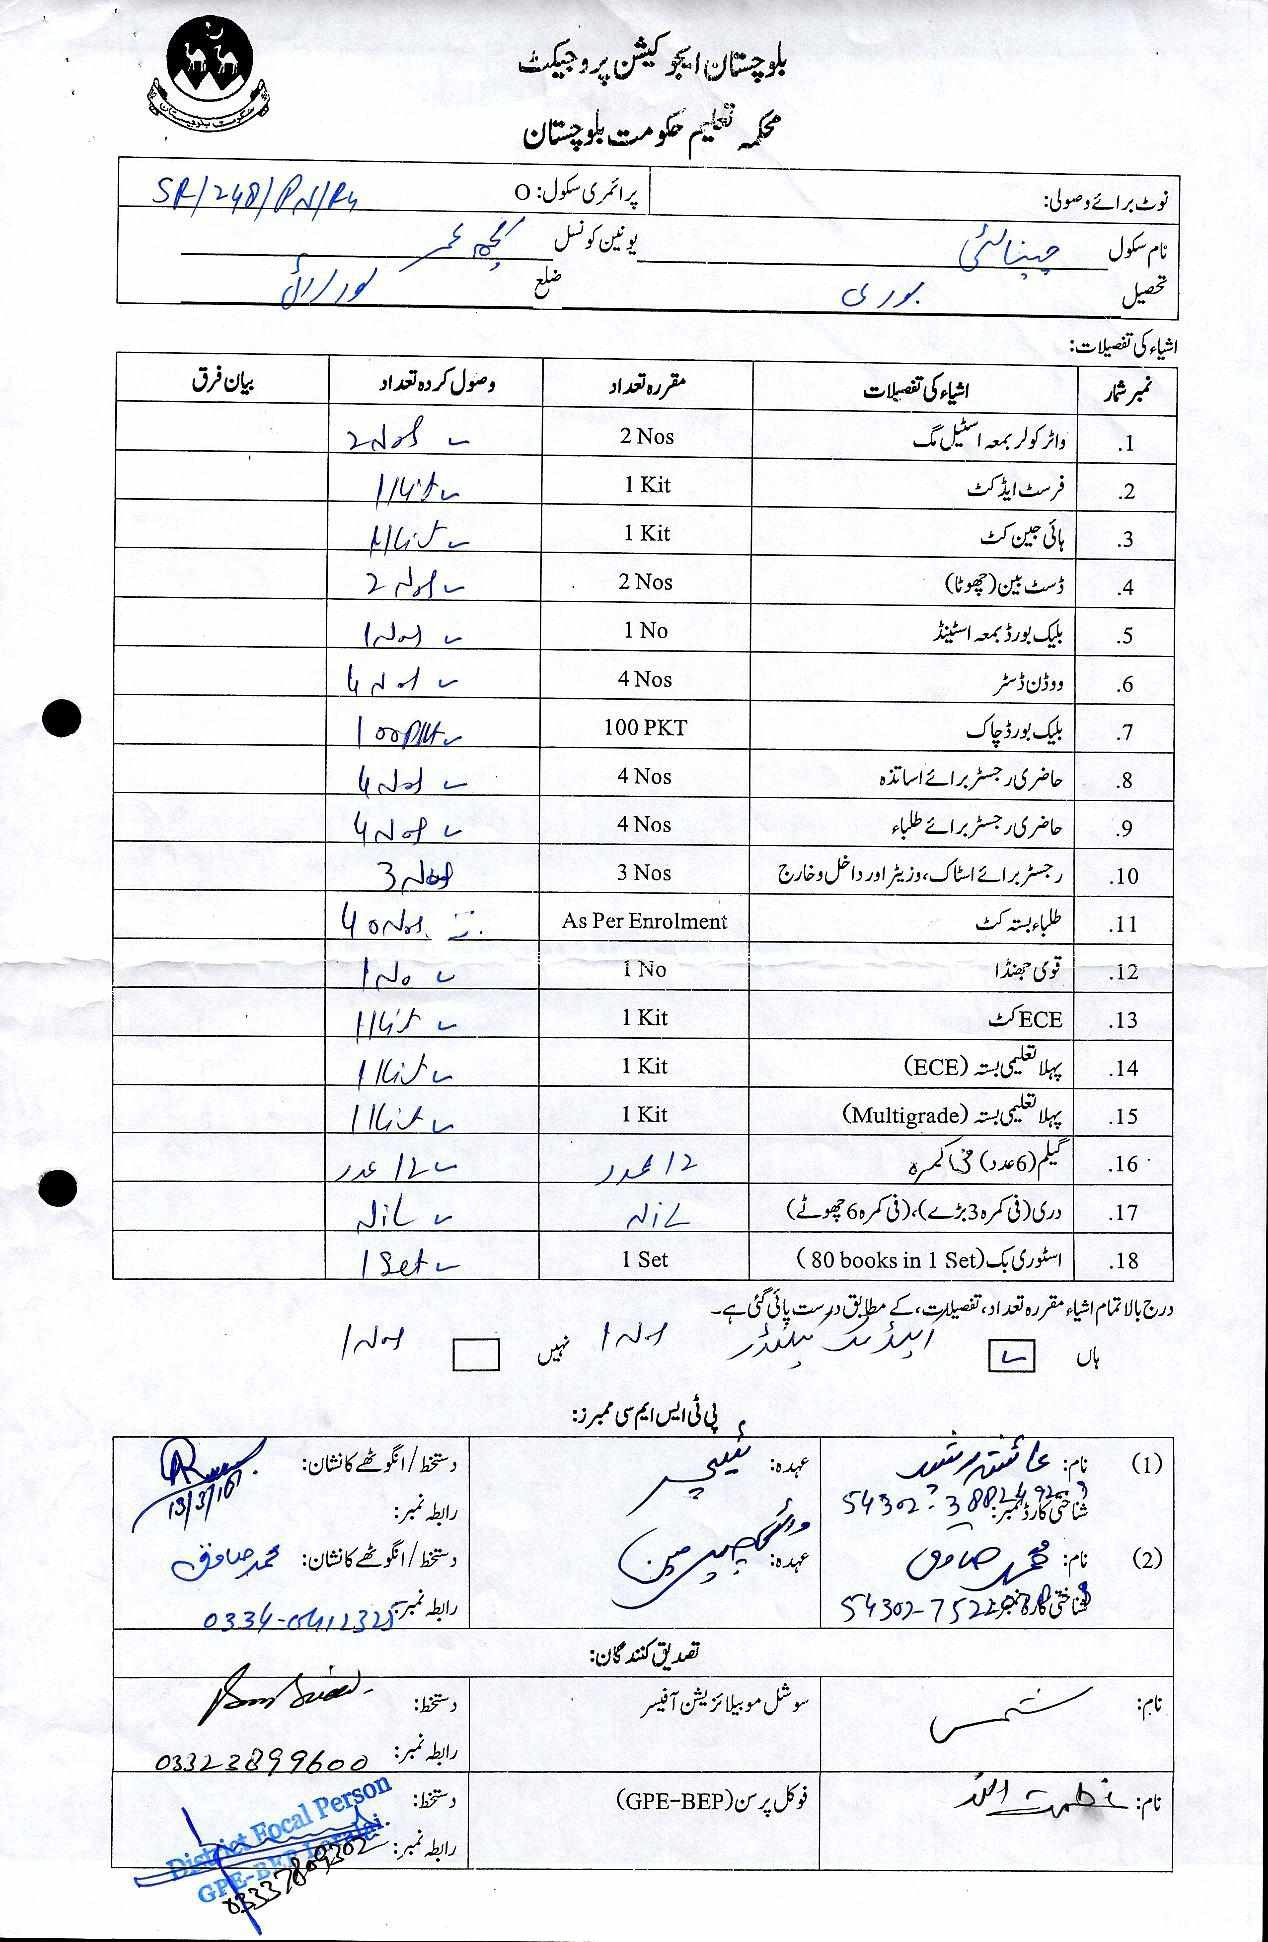 حکومت بلوچستان
بلوچستان ایجوکیشن پروجیکٹ
محکمہ تعلیم حکومت بلوچستان
نوٹ برائے وصولی: پرائمری سکول: O SR/248/PN/R4
نام سکول چینالئی یونین کونسل کچھ عمر
تحصیل بوری ضلع لورالائی
اشیاء کی تفصیلات:
نمبر شمار اشیاء کی تفصیلات مقررہ تعداد وصول کردہ تعداد بیان فرق
1. واٹر کولر بمعہ اسٹیل مگ 2 Nos 2 Nos
2. فرسٹ ایڈ کٹ 1 Kit 1 Kit
3. ہائی جین کٹ 1 Kit 1 Kit
4. ڈسٹ بین (چھوٹا) 2 Nos 2 Nos
5. بلیک بورڈ بمعہ اسٹینڈ 1 No 1 Nos
6. ووڈن ڈسٹر 4 Nos 4 Nos
7. بلیک بورڈ چاک 100 PKT 100 PKT
8. حاضری رجسٹر برائے اساتذہ 4 Nos 4 Nos
9. حاضری رجسٹر برائے طلباء 4 Nos 4 Nos
10. رجسٹر برائے اسٹاک، وزیٹر اور داخل و خارج 3 Nos 3 Nos
11. طلباء بستہ کٹ As Per Enrolment 40 Nos
12. قومی جھنڈا 1 No 1 No
13. ECE کٹ 1 Kit 1 Kit
14. پہلا تعلیمی بستہ (ECE) 1 Kit 1 Kit
15. پہلا تعلیمی بستہ (Multigrade) 1 Kit 1 Kit
16. گیلم (6 عدد) فی کمرہ 12 عدد 12 عدد
17. دری (فی کمرہ 3 بڑے)، (فی کمرہ 6 چھوٹے) Nil Nil
18. اسٹوری بک (80 books in 1 Set) 1 Set 1 Set
درج بالا تمام اشیاء مقررہ تعداد، تفصیلات، کے مطابق درست پائی گئی ہے۔
ہاں 1 Nos نہیں 1 Nos
پی ٹی ایس ایم سی ممبرز:
(1) نام: عائشہ رشید عہدہ: ٹیچر دستخط/انگوٹھے کا نشان:
13/3/16
شناختی کارڈ نمبر: رابطہ نمبر:
(2) نام: محمد صادق عہدہ: وائس چیئرمین دستخط/انگوٹھے کا نشان: محمد صادق
شناختی کارڈ نمبر: رابطہ نمبر: 0334-0412325
تصدیق کنندگان:
نام: شمس سوشل موبیلائزیشن آفیسر دستخط:
رابطہ نمبر: 03323899600
نام: عظمت اللہ فوکل پرسن (GPE-BEP) دستخط:
رابطہ نمبر: 03337809302
District Focal Person
GPE-BEP Loralai